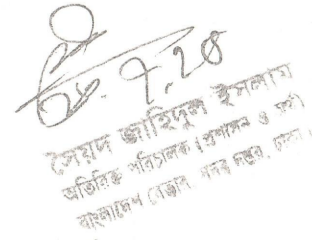 ২০.৭.২৪
সৈয়দ জাহিদুল ইসলাম
অতিরিক্ত পরিচালক (প্রশাসন ও অর্থ)
বাংলাদেশ বেতার, সদর দপ্তর, ঢাকা।